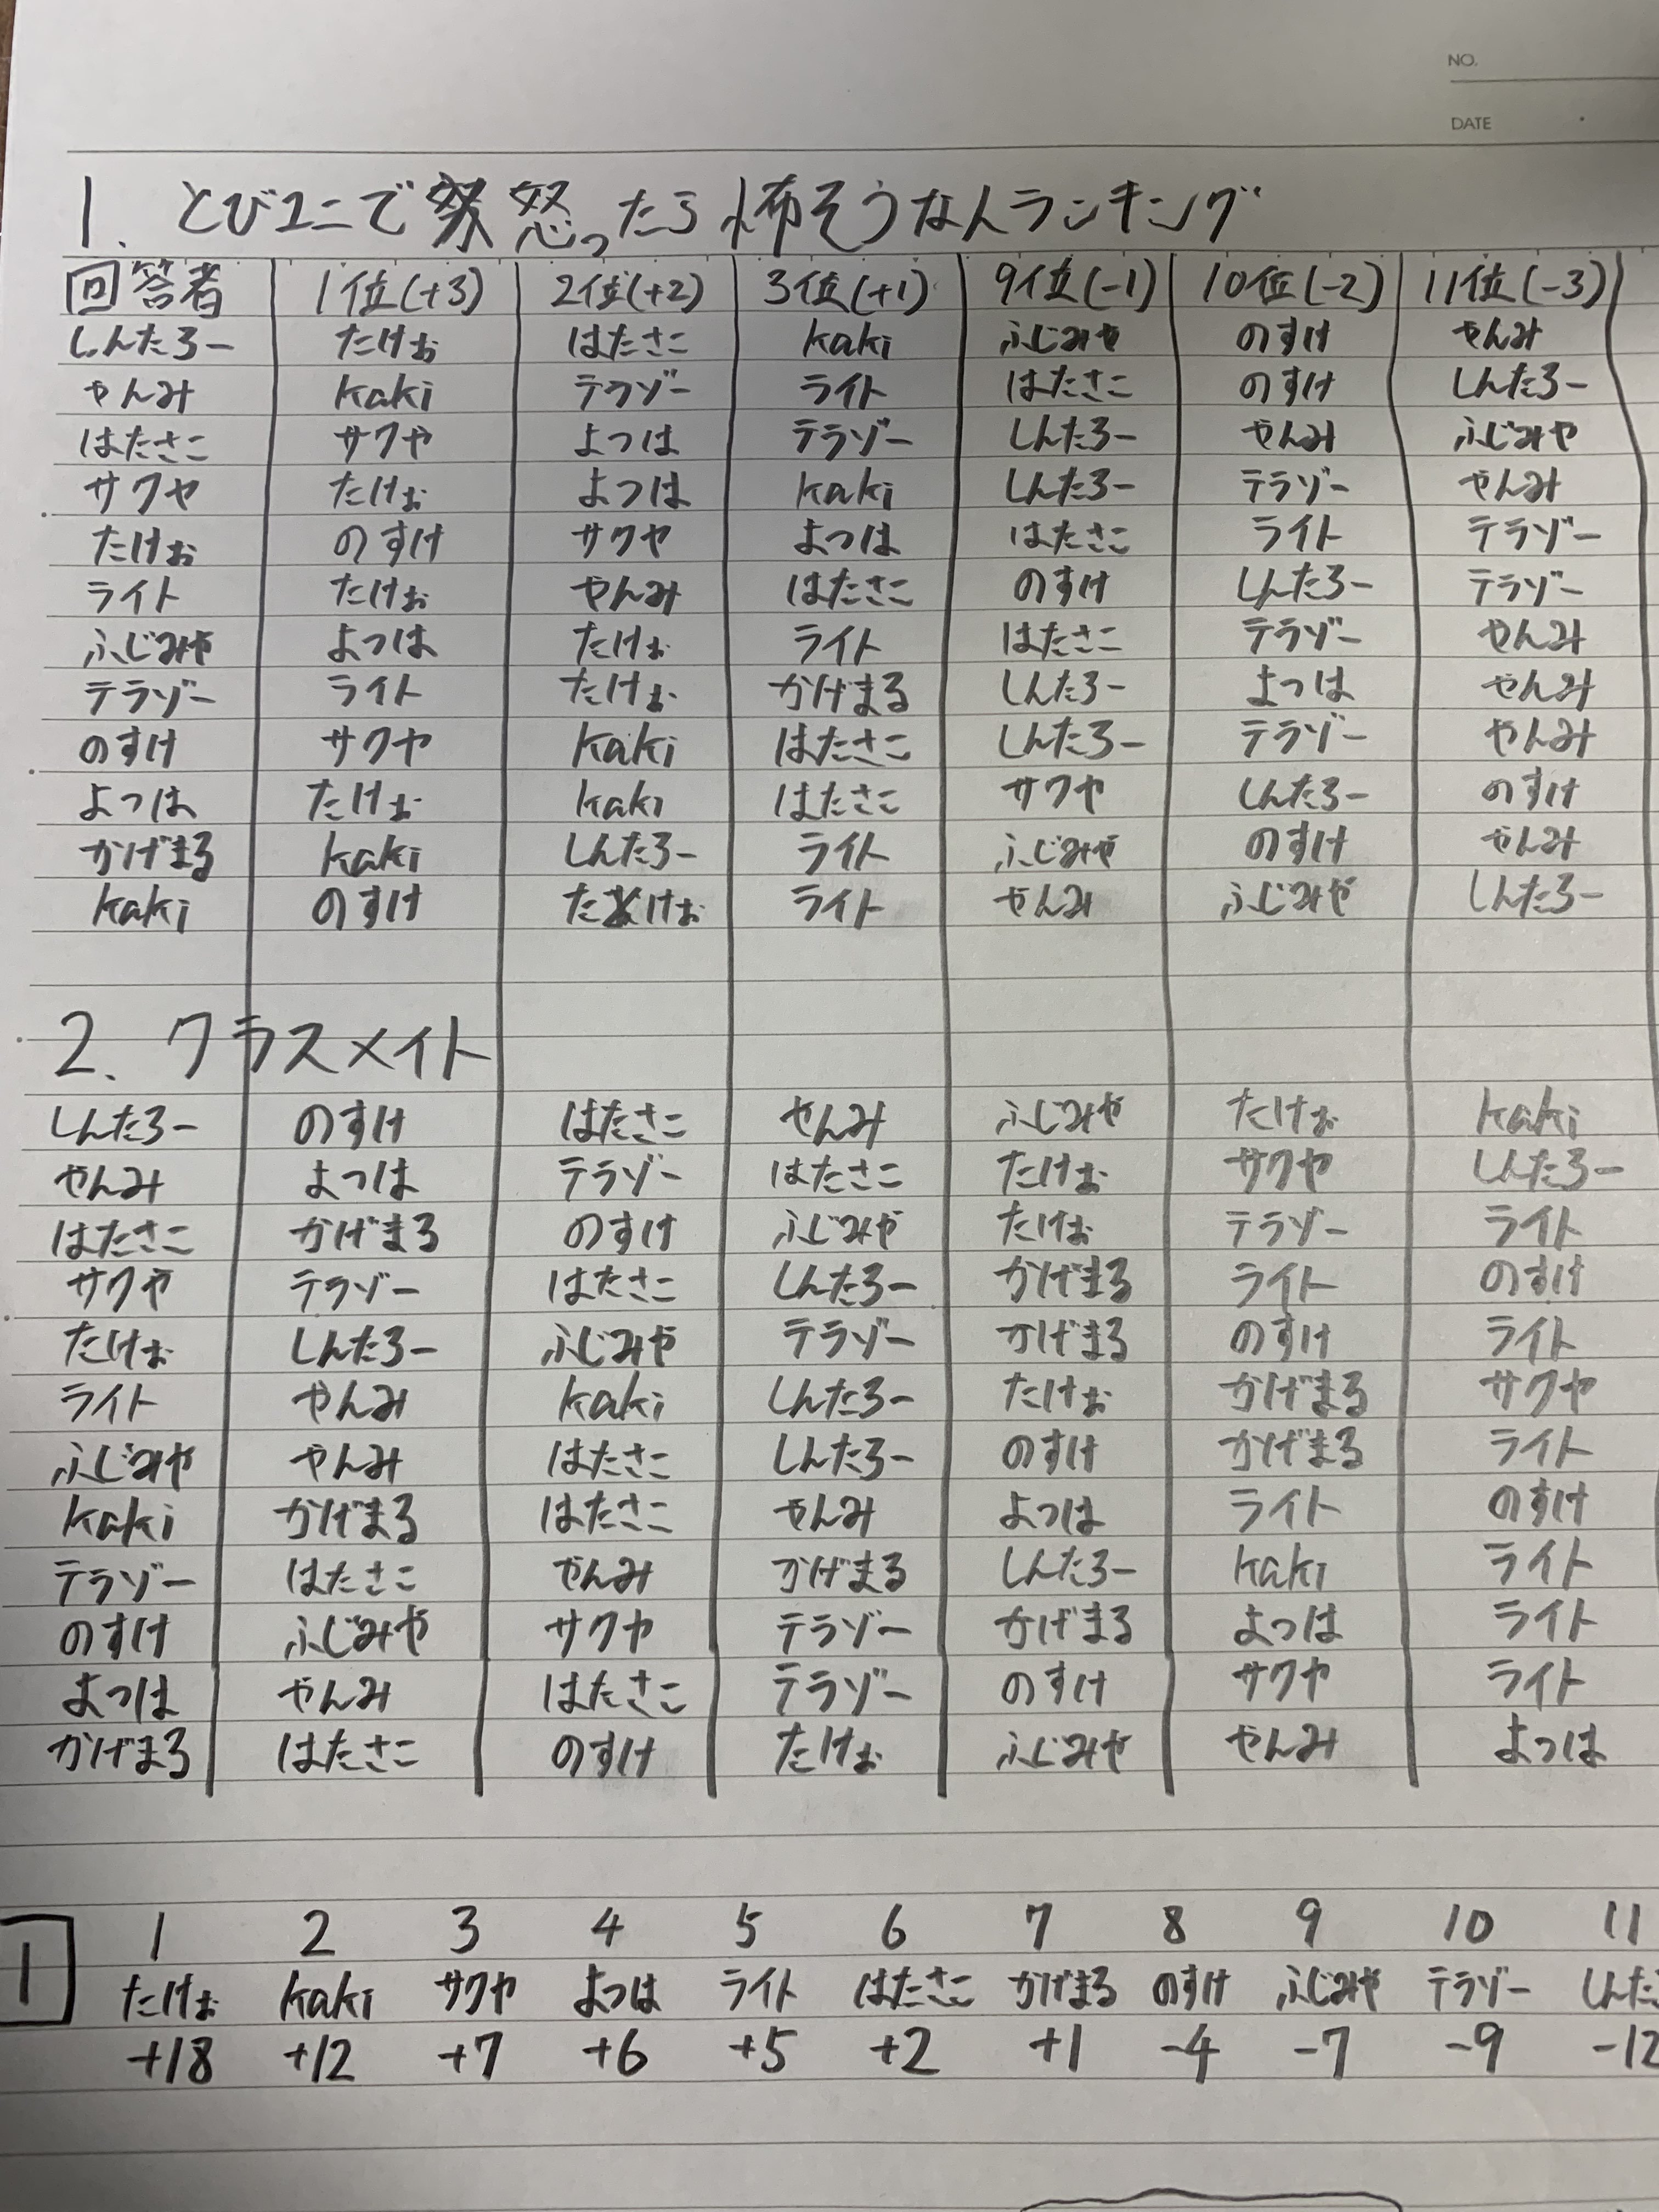 NO.
DATE
1. とびユニで怒ったら怖そうな人ランキング
回答者 1位(+3) 2位(+2) 3位(+1) 9位(-1) 10位(-2) 11位(-3)
しんたろー たけぉ はたさこ kaki ふじみや のすけ やんみ
やんみ kaki テラゾー ライト はたさこ のすけ しんたろー
はたさこ サクヤ よつは テラゾー しんたろー やんみ ふじみや
サクヤ たけぉ よつは kaki しんたろー テラゾー やんみ
たけぉ のすけ サクヤ よつは はたさこ ライト テラゾー
ライト たけぉ やんみ はたさこ のすけ しんたろー テラゾー
ふじみや よつは たけぉ ライト はたさこ テラゾー やんみ
テラゾー ライト たけぉ かげまる しんたろー よつは やんみ
のすけ サクヤ kaki はたさこ しんたろー テラゾー やんみ
よつは たけぉ kaki はたさこ サクヤ しんたろー のすけ
かげまる kaki しんたろー ライト ふじみや のすけ やんみ
kaki のすけ たけぉ ライト やんみ ふじみや しんたろー
2. クラスメイト
しんたろー のすけ はたさこ やんみ ふじみや たけぉ kaki
やんみ よつは テラゾー はたさこ たけぉ サクヤ しんたろー
はたさこ かげまる のすけ ふじみや たけぉ テラゾー ライト
サクヤ テラゾー はたさこ しんたろー かげまる ライト のすけ
たけぉ しんたろー ふじみや テラゾー かげまる のすけ ライト
ライト やんみ kaki しんたろー たけぉ かげまる サクヤ
ふじみや やんみ はたさこ しんたろー のすけ かげまる ライト
kaki かげまる はたさこ やんみ よつは ライト のすけ
テラゾー はたさこ やんみ かげまる しんたろー kaki ライト
のすけ ふじみや サクヤ テラゾー かげまる よつは ライト
よつは やんみ はたさこ テラゾー のすけ サクヤ ライト
かげまる はたさこ のすけ たけぉ ふじみや やんみ よつは
1 1 2 3 4 5 6 7 8 9 10 11
たけぉ kaki サクヤ よつは ライト はたさこ かげまる のすけ ふじみや テラゾー しんた
+18 +12 +7 +6 +5 +2 +1 -4 -7 -9 -12